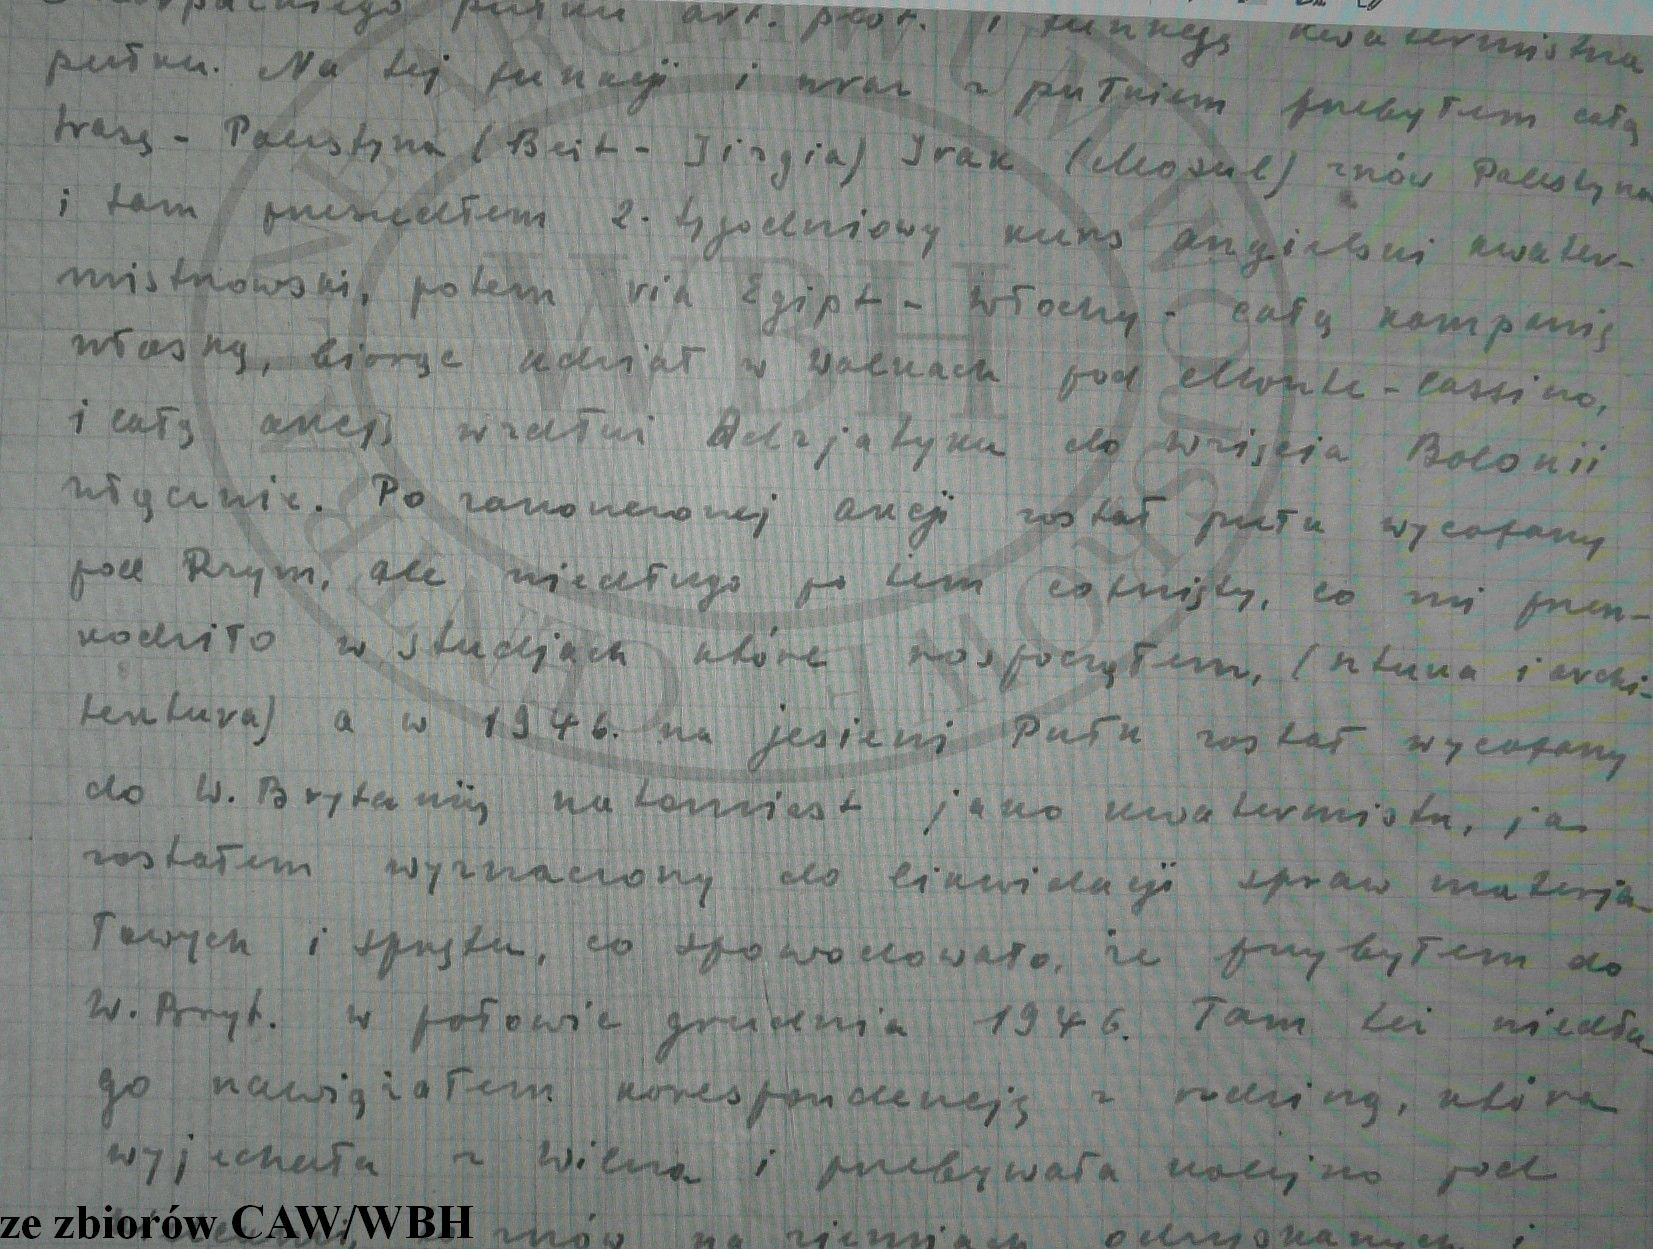 pułku art. plot. i funkcję kwatermistrza
pułku. Na tej funkcji i wraz z pułkiem przebyłem całą
trasę - Palestyna (Beit - Jirgia) Irak (Mosul) znów Palestyna
i tam przeszedłem 2. tygodniowy kurs angielski kwater-
mistrzowski, potem via Egipt - Włochy - całą kampanię
włoską, biorąc udział w walkach pod Monte - Cassino,
i całą akcję wzdłuż Adrjatyku do wzięcia Bolonii
włącznie. Po zakończonej akcji został pułk wycofany
pod Rzym, ale niedługo po tem cofnięty, co mi przesz-
kodziło w studjach które rospocząłem, (sztuka i archi-
tektura) a w 1946. na jesieni Pułk został wycofany
do W. Brytanii, natomiast jako kwatermistrz, ja
zostałem wyznaczony do likwidacji spraw materja-
łowych i sprzętu, co spowodowało, że przybyłem do
W. Bryt. w połowie grudnia 1946. Tam też niedłu-
go nawiązałem korespondencję z rodziną, która
wyjechała z Wilna i przebywała kolejno pod
znów na ziemiach odzyskanych i
ze zbiorów CAW/WBH
WBH